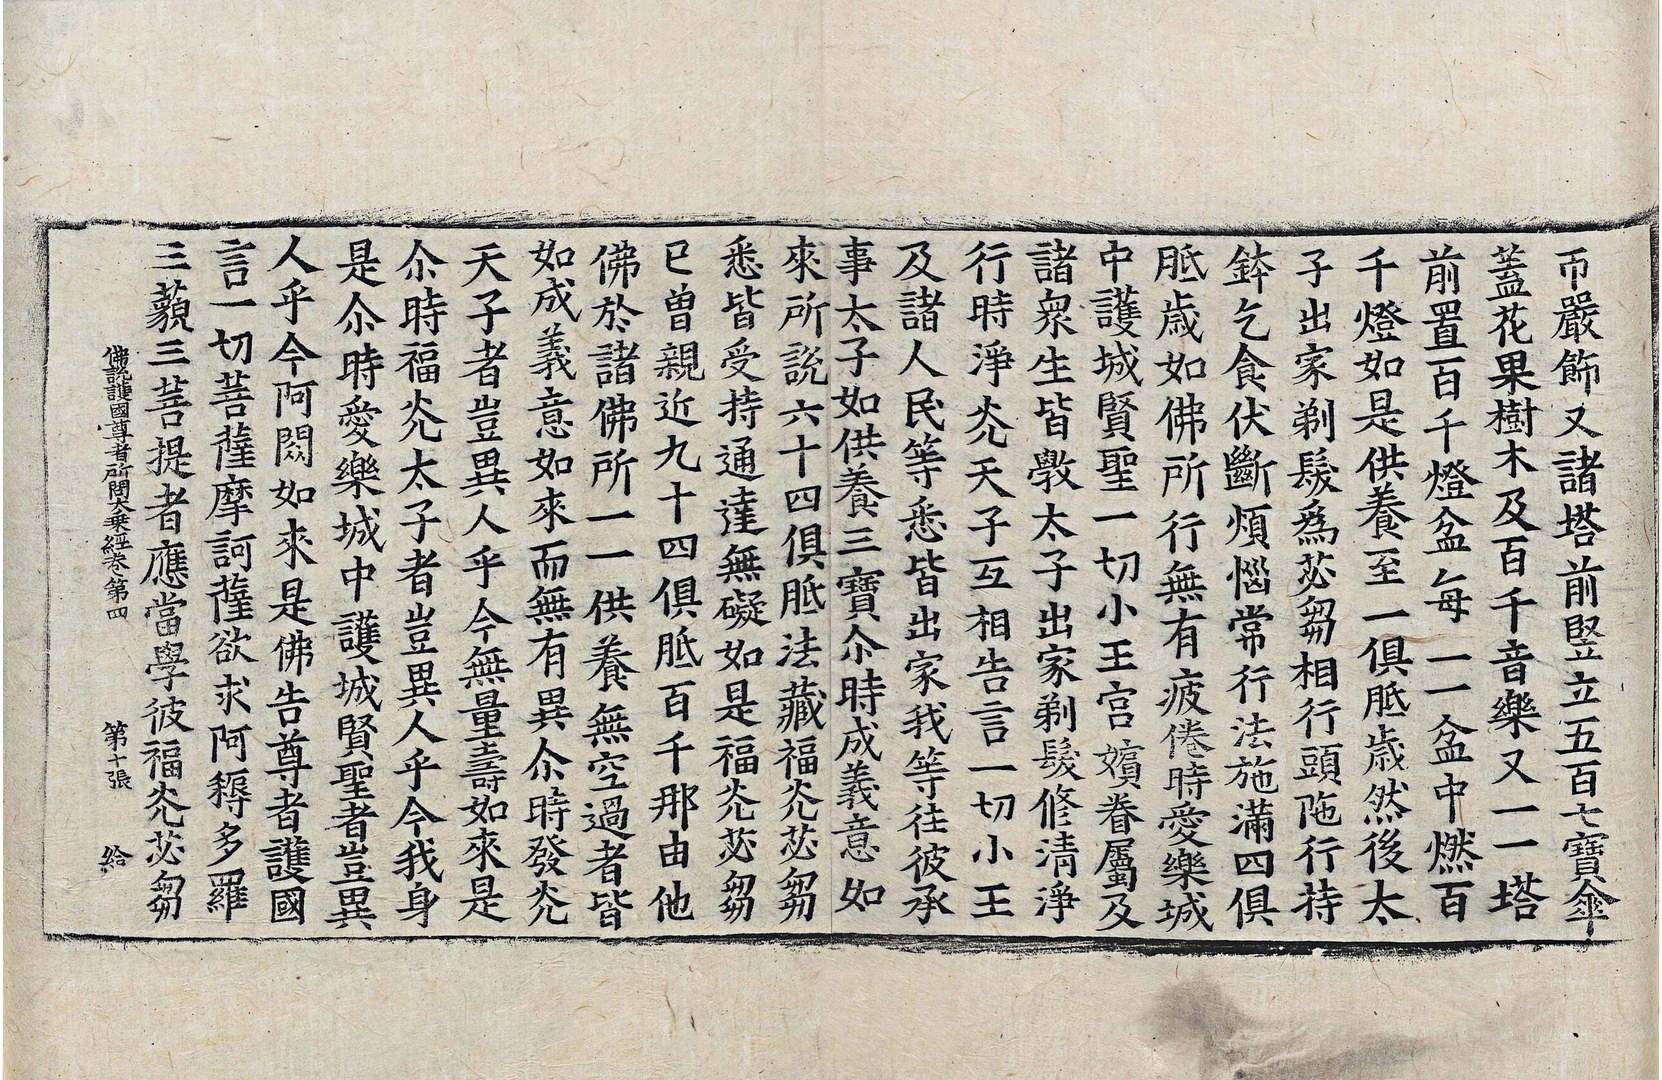 帀嚴飾又諸塔前竪立五百七寶傘
蓋花果樹木及百千音樂又一一塔
前置百千燈盆每一一盆中燃百
千燈如是供養至一俱胝歲然後太
子出家剃髮爲苾芻相行頭陁行持
鉢乞食伏斷煩惱常行法施滿四俱
胝歲如佛所行無有疲倦時愛樂城
中護城賢聖一切小王宮嬪眷屬及
諸衆生皆斆太子出家剃髮修清淨
行時淨光天子互相告言一切小王
及諸人民等悉皆出家我等往彼承
事太子如供養三寶尒時成義意如
來所說六十四俱胝法藏福光苾芻
悉皆受持通達無礙如是福光苾芻
已曾親近九十四俱胝百千那由他
佛於諸佛所一一供養無空過者皆
如成義意如來而無有異尒時發光
天子者豈異人乎今無量壽如來是
尒時福光太子者豈異人乎今我身
是尒時愛樂城中護城賢聖者豈異
人乎今阿閦如來是佛告尊者護國
言一切菩薩摩訶薩欲求阿耨多羅
三藐三菩提者應當學彼福光苾芻
佛說護國尊者所問大乘經卷第四 第十張 給